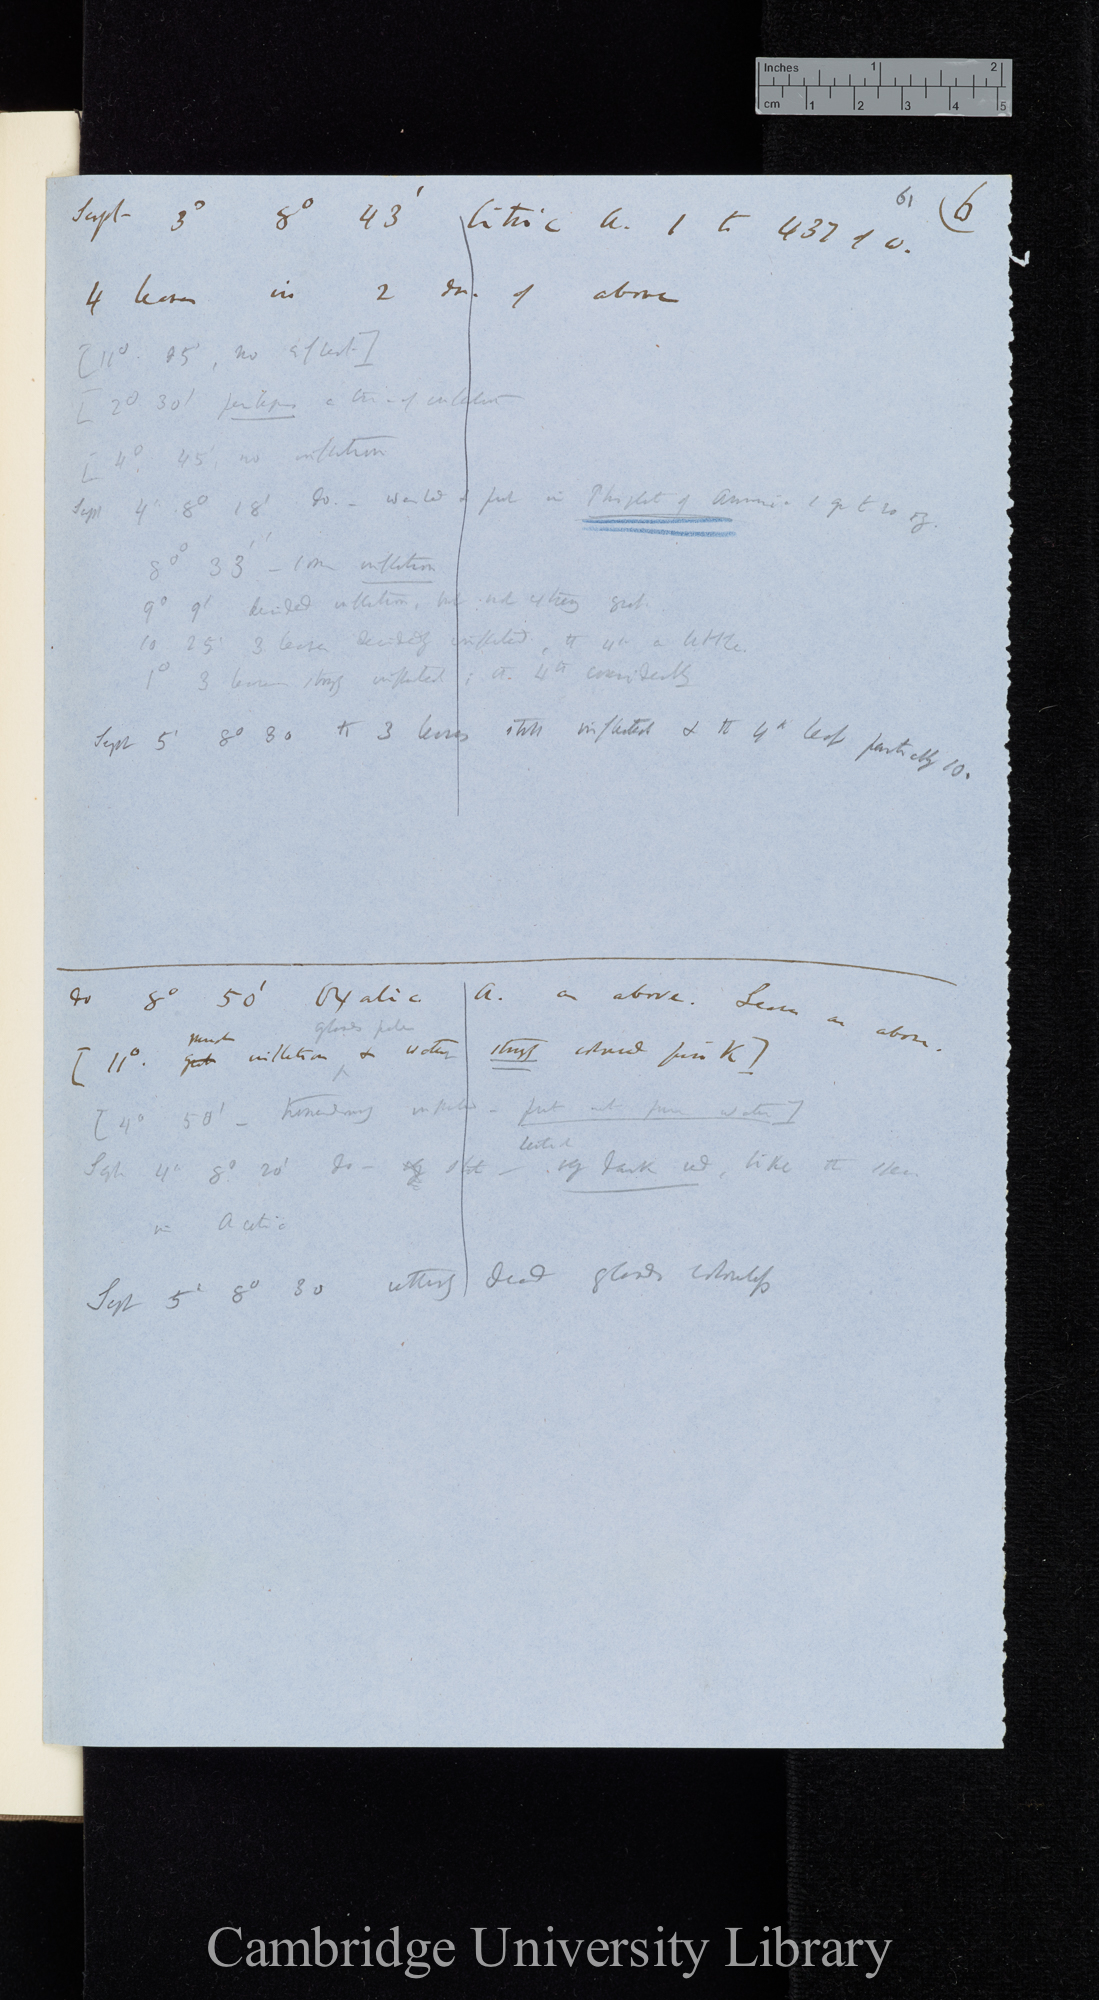 Inches 1 2
cm 1 2 3 4 5
61 (6
Sept 3° 8° 43' Citric A. 1 to 437 of w.
4 leaves in 2 dr. of above
[11° 25', no effect]
[2° 30' perhaps a trace of inflection
[4° 45' no inflection
Sept 4th 8° 18' do. – washed & put in Phosphate of Ammonia 1 gr to 20 oz.
8° 33' – some inflection
9° 9' decided inflection, but not very great
10 25' 3 leaves decidedly inflected, the 4th a little
1° 3 leaves strongly inflected; the 4th considerably
Sept 5' 8° 30 the 3 leaves still inflected & the 4th leaf partially so.
do 8° 50' Oxalic A. as above. Leaves as above.
much glands pale
[11°. great inflection & water strongly coloured pink]
[4° 50' – tremendously inflected – put into pure water]
Sept 4th 8° 20' do – – dark red, like the
in Acetic
Sept 5' 8° 30 utterly dead glands colourless
Cambridge University Library